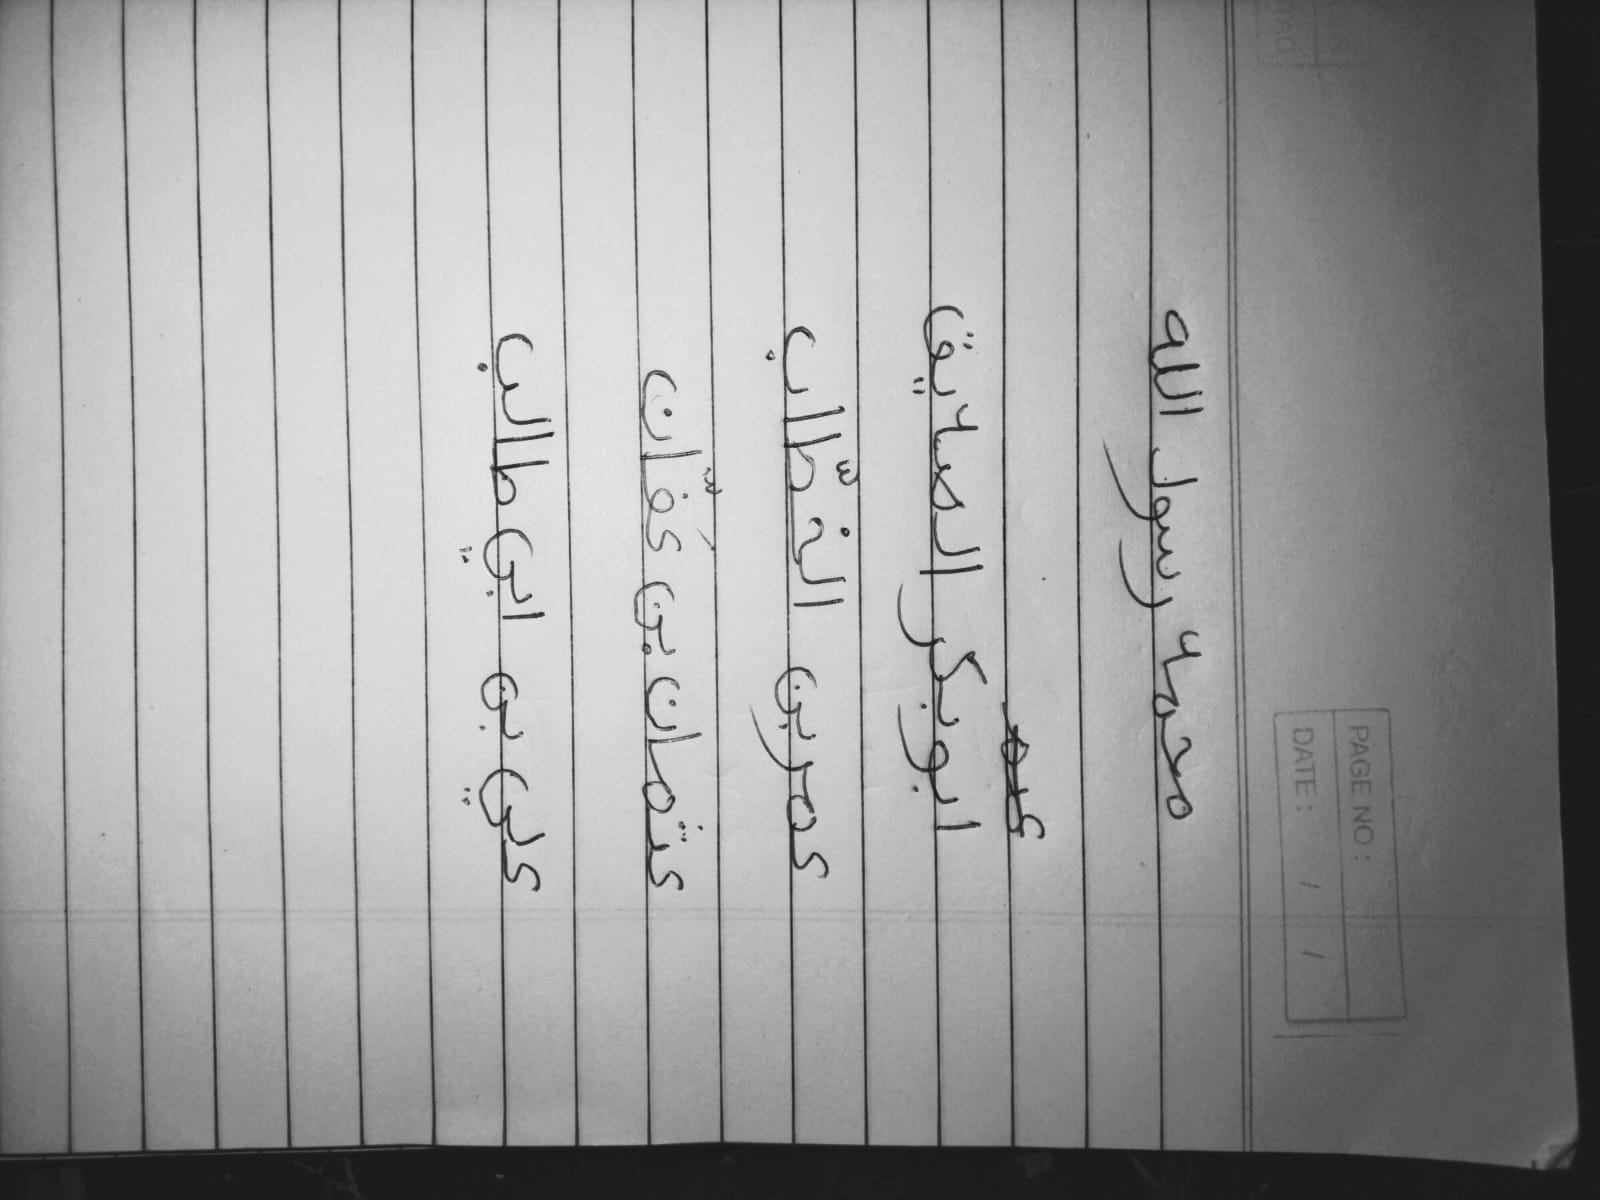 PAGE NO:
DATE: / /
محمد رسول الله
ابوبكر الصديق
عمر بن الخطّاب
عثمان بن عَفّان
علي بن ابي طالب